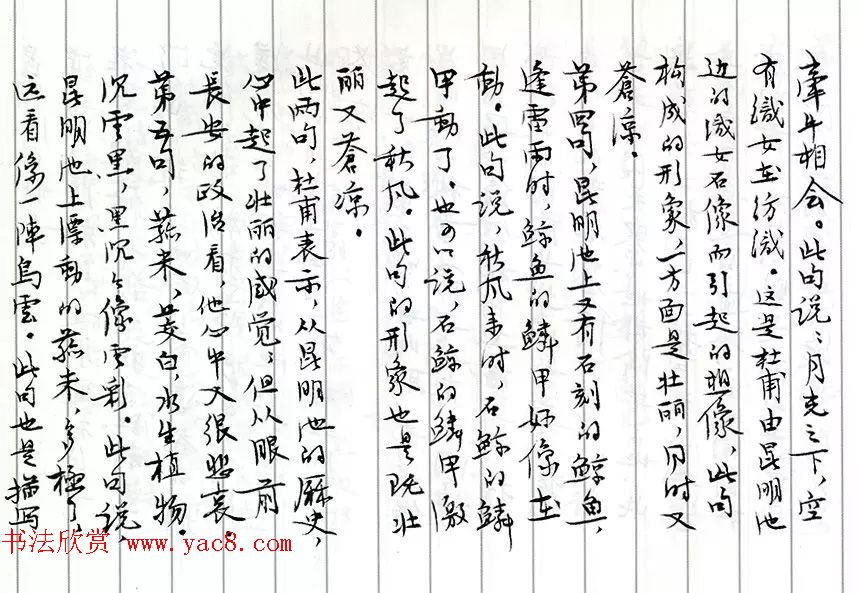 牽牛相会。此句说：月光之下，空
有織女在彷織。这是杜甫由昆明池
边的織女石像而引起的想像，此句
构成的形象，一方面是壮丽，同时又
蒼凉。
第四句，昆明池上又有石刻的鯨魚，
逢雷雨时，鯨魚的鱗甲好像在
動。此句说，秋风来时，石鯨的鱗
甲動了。也可以说，石鯨的鱗甲激
起了秋风。此句的形象也是既壮
丽又蒼凉。
此两句，杜甫表示，从昆明池的歷史，
心中起了壮丽的感觉；但从眼前
長安的政治看，他心中又很悲哀。
第五句，菰米，茭白，水生植物。
沉雲黑，黑沉々像雲彩。此句说，
昆明池上漂動的菰米，多極了，
远看像一陣烏雲。此句也是描写
书法欣赏 www.yac8.com